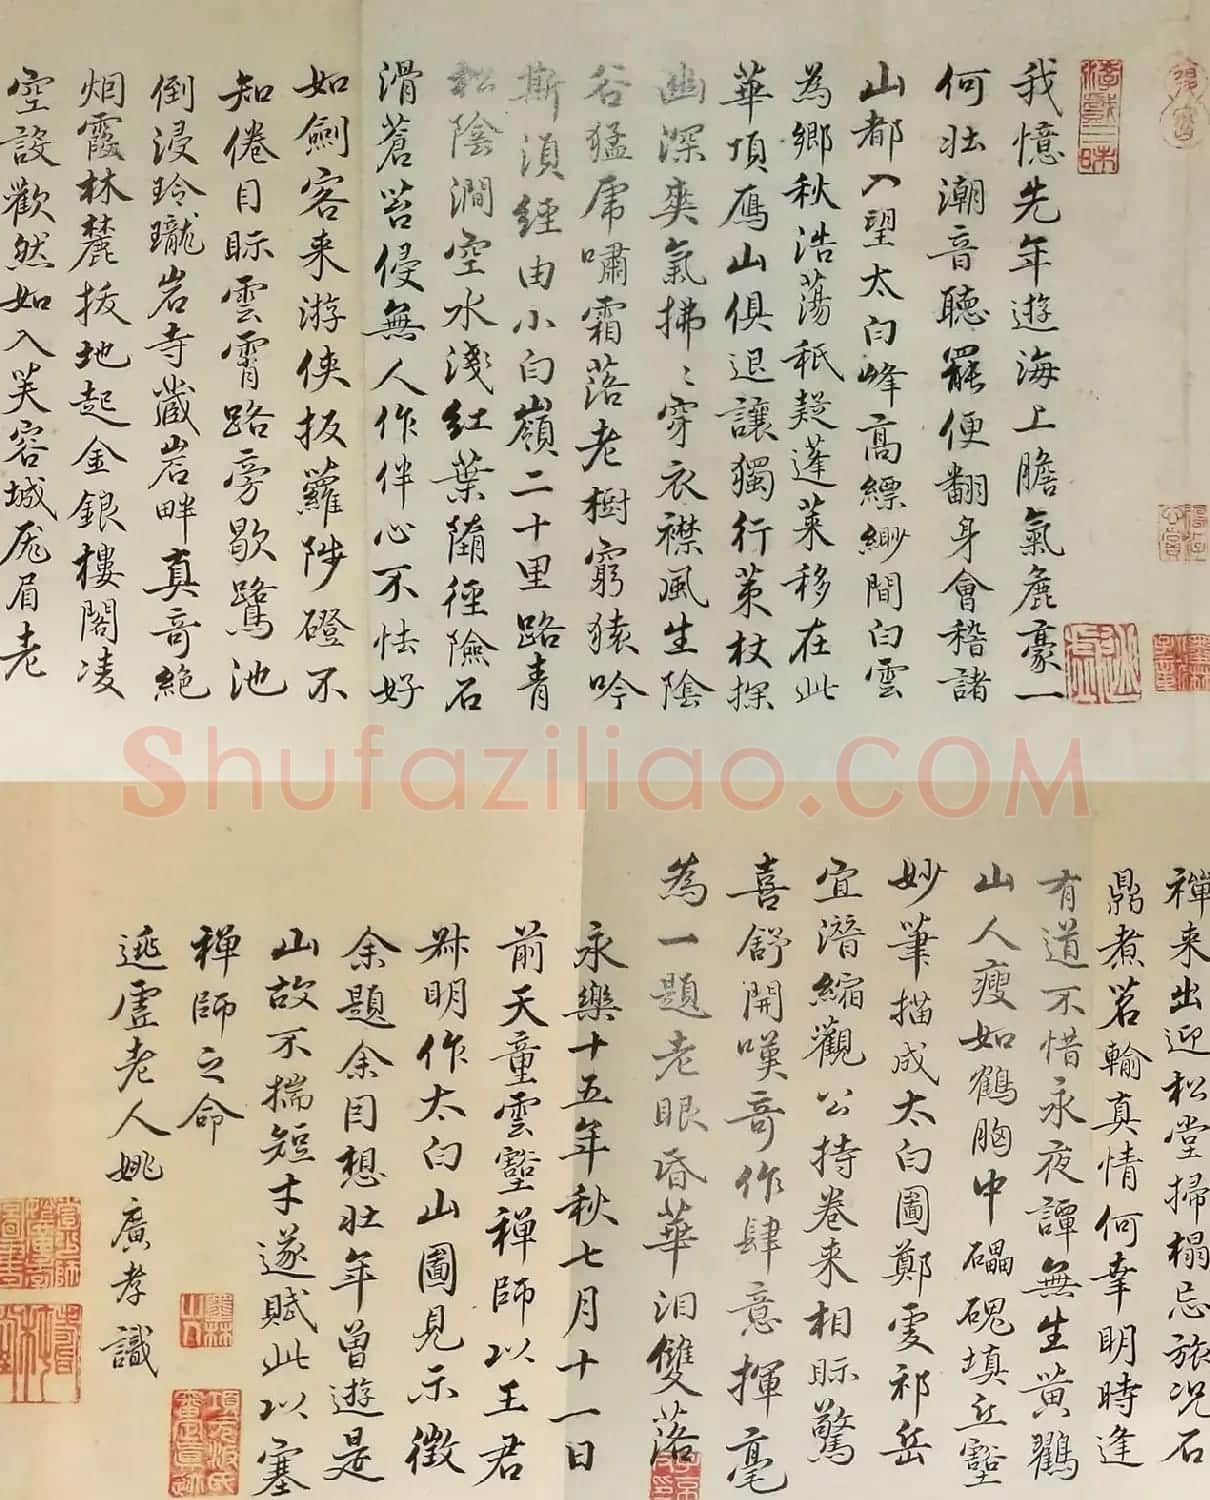 我憶先年遊海上膽氣麁豪一
何壯潮音聽罷便翻身會稽諸
山都入望太白峰高縹緲間白雲
為鄉秋浩蕩秖疑蓬萊移在此
華頂鴈山俱退讓獨行策杖探
幽深爽氣拂〻穿衣襟風生陰
谷猛虎嘯霜落老樹窮猿吟
斯須經由小白嶺二十里路青
松陰澗空水淺紅葉墮徑險石
滑蒼苔侵無人作伴心不怯好
如劍客来游俠扳蘿陟磴不
知倦目眎雲霄路旁歇鷺池
倒浸玲瓏岩寺藏岩畔真奇絕
烟霞林麓拔地起金銀樓閣凌
空設歡然如入芙容城厖眉老
禪来出迎松堂掃榻忘旅况石
鼎煮茗輸真情何幸明時逢
有道不惜永夜譚無生黃鶴
山人瘦如鶴胸中礧磈填丘壑
妙筆描成太白圖鄭虔祁岳
宜潛縮觀公持卷来相眎驚
喜舒開嘆奇作肆意揮毫
為一題老眼昏華泪雙落
永樂十五年秋七月十一日
前天童雲壑禪師以王君
叔明作太白山圖見示徵
余題余因想壯年曾遊是
山故不揣短才遂賦此以塞
禪師之命
逃虛老人姚廣孝識
Shufaziliao.COM